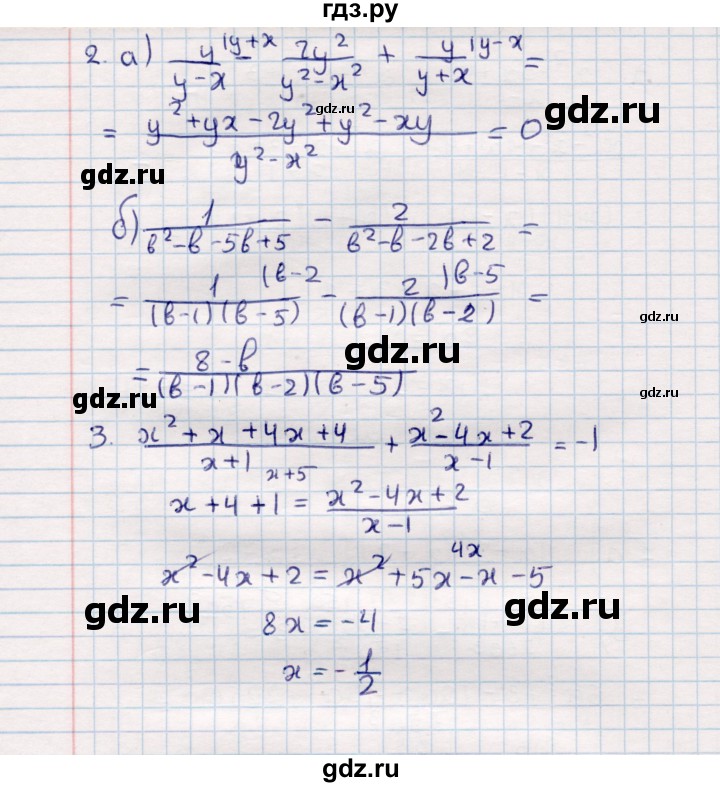 гдз.ру
2. а) y/(y-x) |y+x - 2y²/(y²-x²) + y/(y+x) |y-x =
= (y²+yx-2y²+y²-xy)/(y²-x²) = 0
gdz.ru
gdz.ru
gdz.ru
б) 1/(b²-b-5b+5) - 2/(b²-b-2b+2) =
= 1/((b-1)(b-5)) |b-2 - 2/((b-1)(b-2)) |b-5 =
gdz.ru
= (8-b)/((b-1)(b-2)(b-5))
gdz.ru
gdz.ru
gdz.ru
3. (x²+x+4x+4)/(x+1) + (x²-4x+2)/(x-1) = -1
x+5
x+4+1 = (x²-4x+2)/(x-1)
4x
x²-4x+2 = x²+5x-x-5
gdz.ru
gdz.ru
8x = -4
gdz.ru
x = -1/2
gdz.ru
gdz.ru